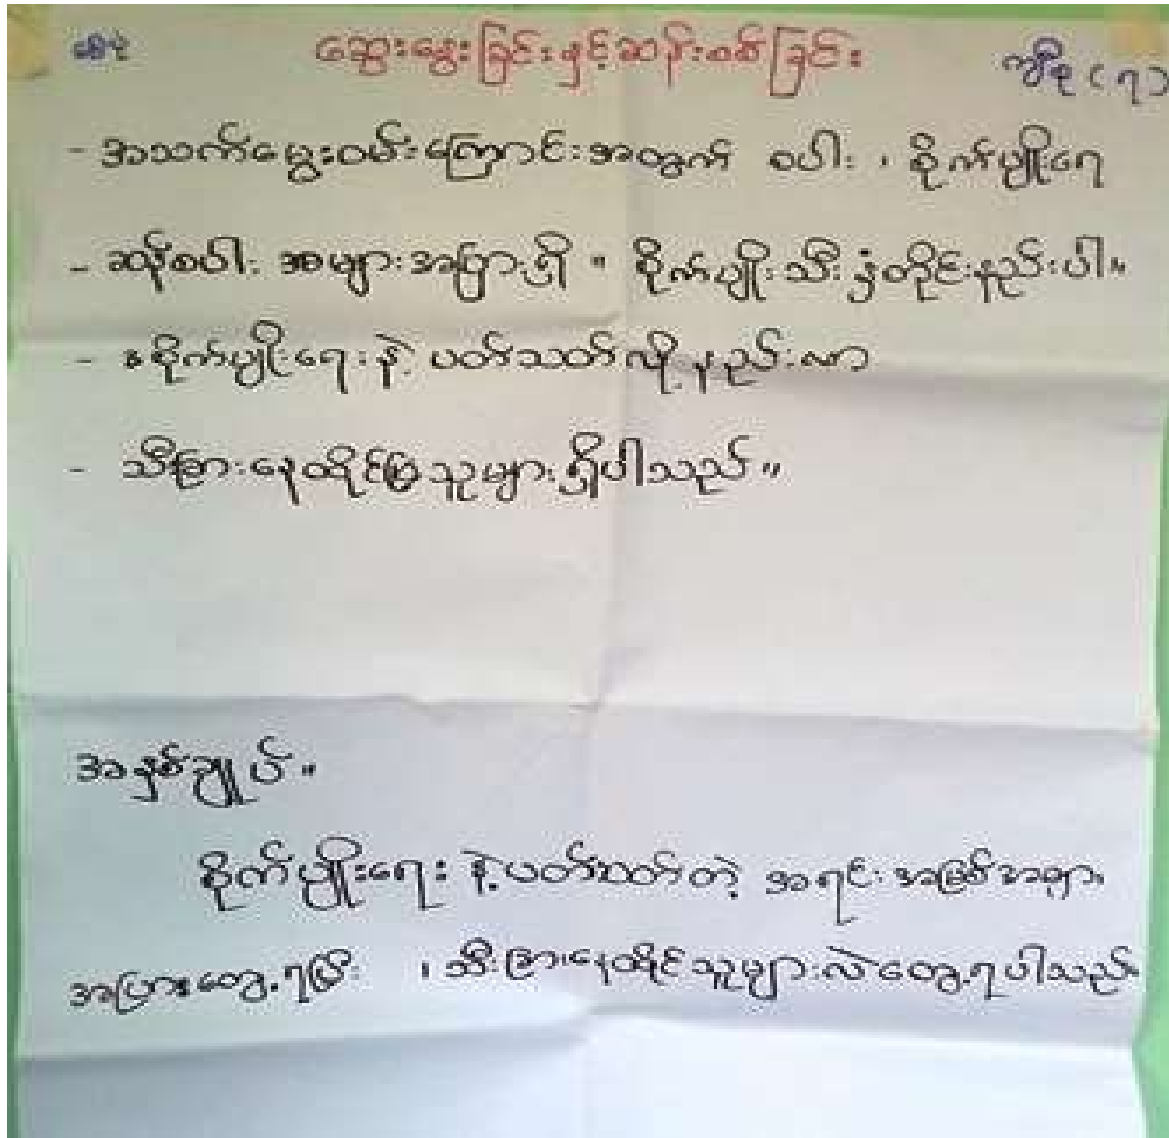 ဆွေးနွေးခြင်းနှင့်ဆန်းစစ်ခြင်း
ကျီစု (၇)
- အသက်မွေးဝမ်းကြောင်းအတွက် စပါး ၊ စိုက်ပျိုးရေ
- ဆန်စပါး အများအပြားရှိ ။ စိုက်ပျိုးသီးနှံတိုင်းနည်းပါ။
- စိုက်ပျိုးရေးနဲ့ ပတ်သတ်လို့နည်းလာ
- သီးခြားနေထိုင်သူများရှိပါသည်။
အနှစ်ချုပ်။
စိုက်ပျိုးရေး နဲ့ပတ်သတ်တဲ့ အရင်းအမြစ်အများ
အပြားတွေ့ရပြီး ၊ သီးခြားနေထိုင်သူများလဲတွေ့ရပါသည်